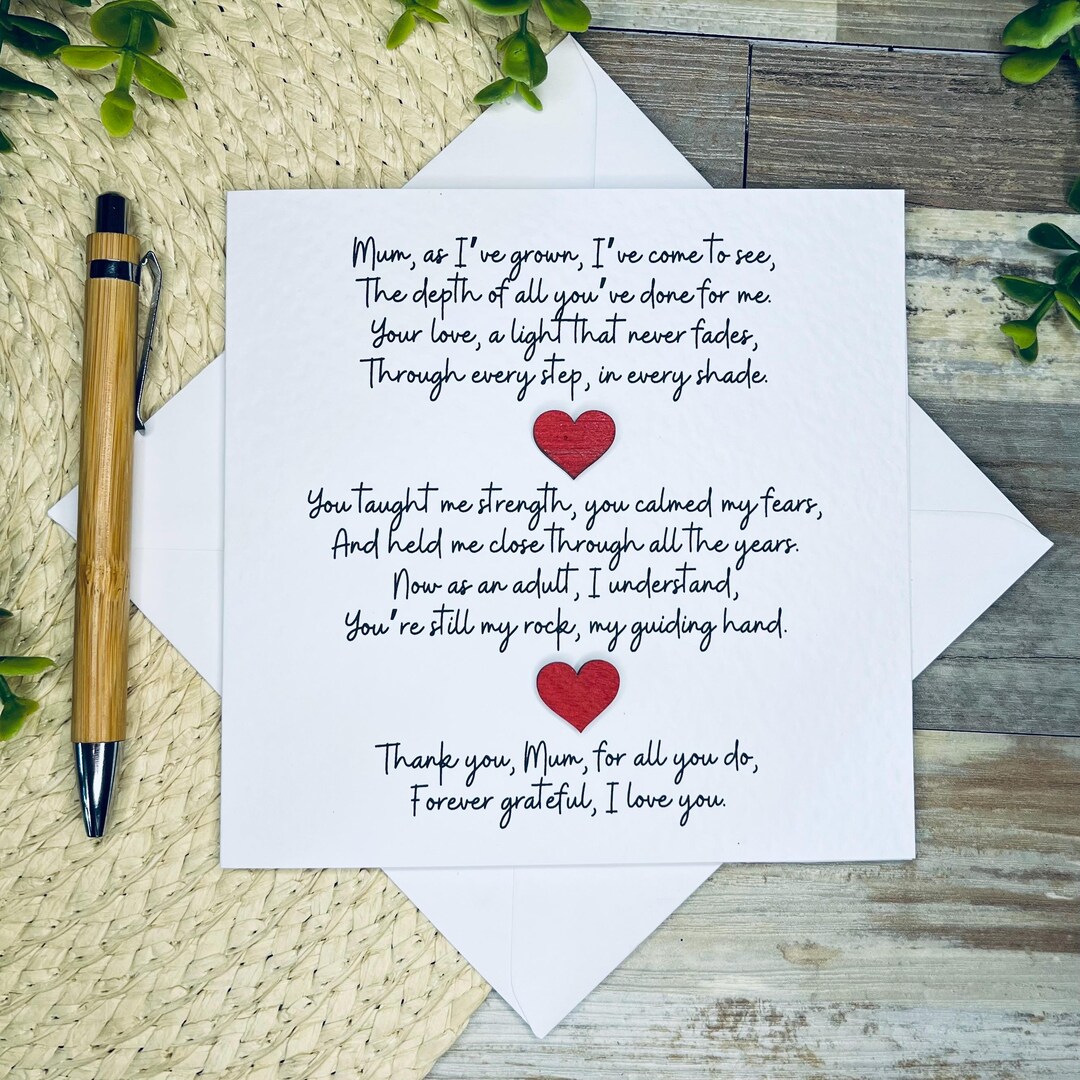 Mum, as I've grown, I've come to see,
The depth of all you've done for me.
Your love, a light that never fades,
Through every step, in every shade.
You taught me strength, you calmed my fears,
And held me close through all the years.
Now as an adult, I understand,
You're still my rock, my guiding hand.
Thank you, Mum, for all you do,
Forever grateful, I love you.